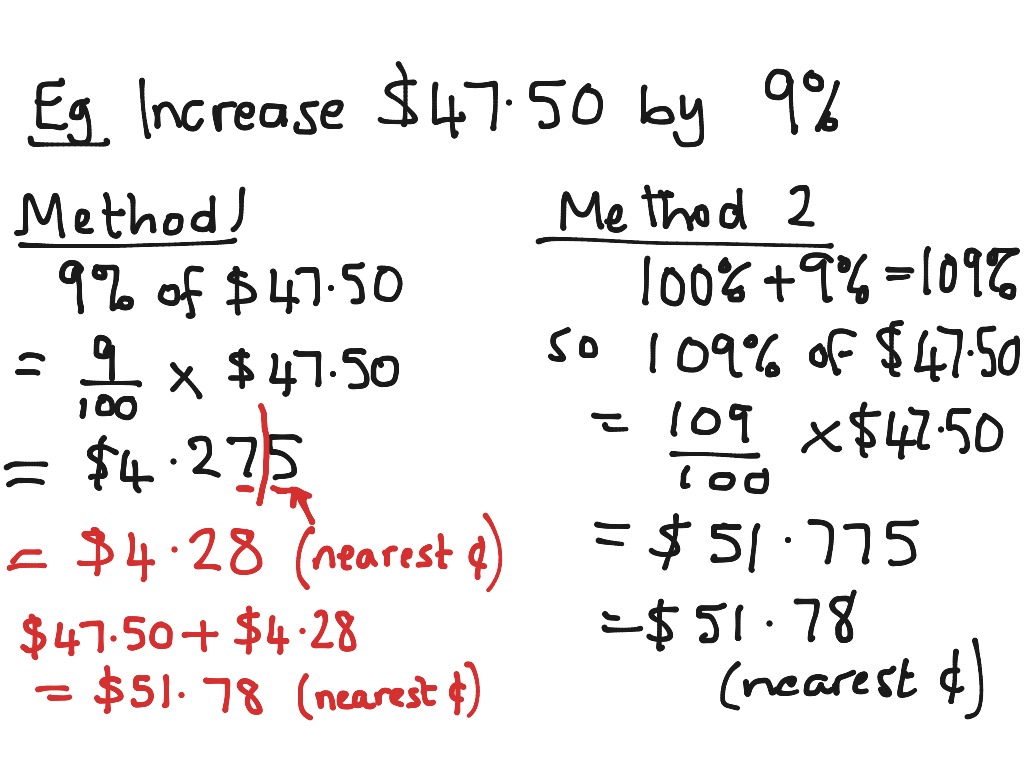 Eg Increase $47·50 by 9%
Method 1
9% of $47·50
= 9/100 × $47·50
= $4·27|5
= $4·28 (nearest ¢)
$47·50 + $4·28
= $51·78 (nearest ¢)
Method 2
100% + 9% = 109%
so 109% of $47·50
= 109/100 × $47·50
= $51·775
= $51·78
(nearest ¢)